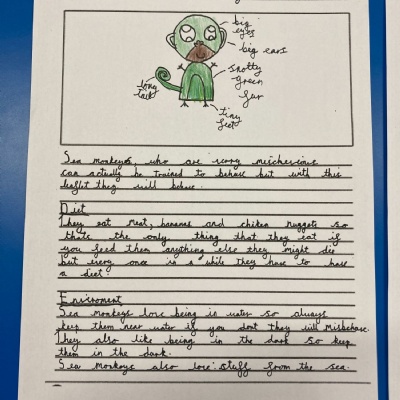 big
eyes
big ears
snotty
green
fur
long
tail
tiny
feet
Sea monkeys, who are very mischevious
can actually be trained to behave but with this
leaflet they will behave.
Diet
They eat meat, bananas and chiken nuggets so
thats the only thing that they eat if
you feed them anything else they might die
but every once in a while they have to have
a diet.
Enviroment
Sea monkeys love being in water so always
keep them near water if you dont they will misbehave.
They also like being in the dark so keep
them in the dark.
Sea monkeys also love stuff from the sea.